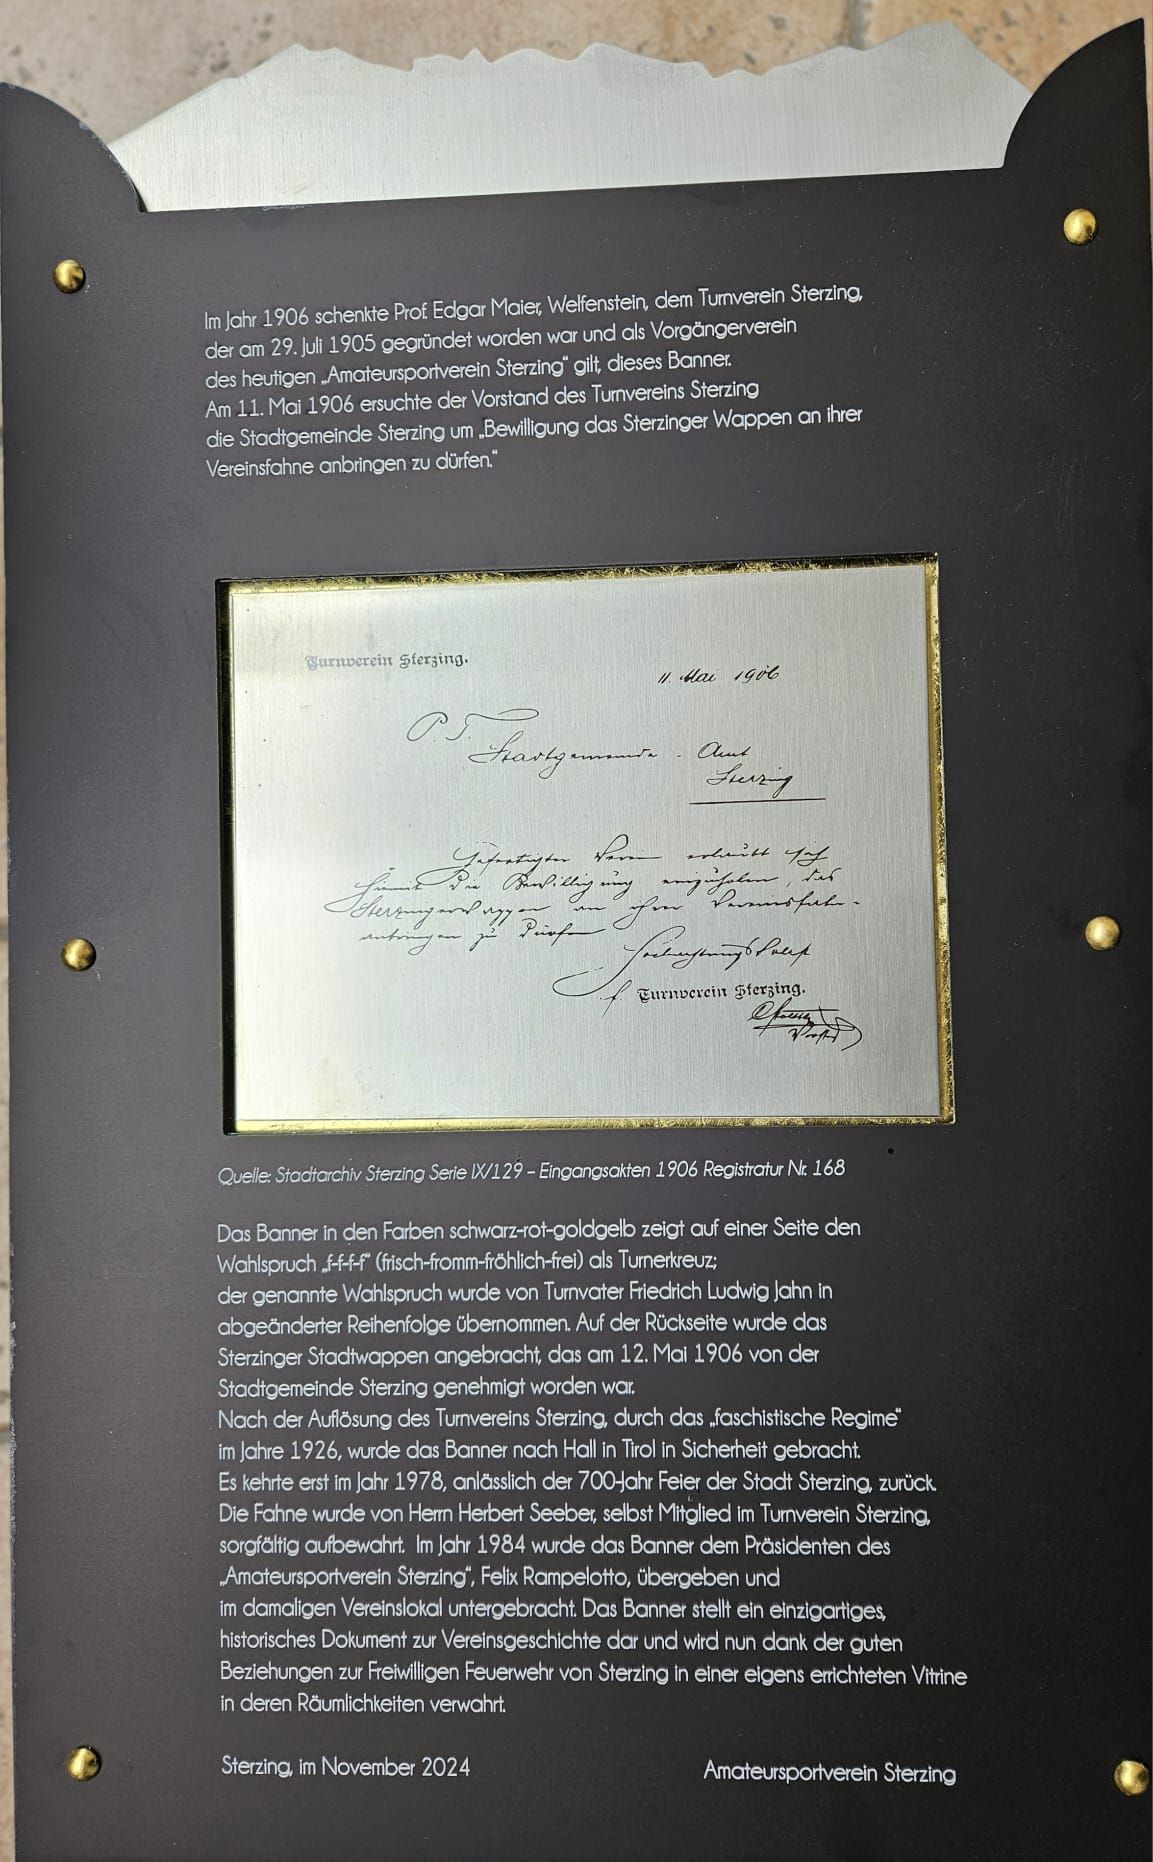 Im Jahr 1906 schenkte Prof. Edgar Maier, Welfenstein, dem Turnverein Sterzing,
der am 29. Juli 1905 gegründet worden war und als Vorgängerverein
des heutigen „Amateursportverein Sterzing“ gilt, dieses Banner.
Am 11. Mai 1906 ersuchte der Vorstand des Turnvereins Sterzing
die Stadtgemeinde Sterzing um „Bewilligung das Sterzinger Wappen an ihrer
Vereinsfahne anbringen zu dürfen.“
Turnverein Sterzing.
11. Mai 1906
P. T.
Stadtgemeinde - Amt
Sterzing
Gefertigter Verein erlaubt sich
hiemit die Bewilligung einzuholen, das
Sterzinger Wappen an ihrer Vereinsfahne
anbringen zu dürfen
Hochachtungsvollst
f. Turnverein Sterzing.
Quelle: Stadtarchiv Sterzing Serie IX/129 – Eingangsakten 1906 Registratur Nr. 168
Das Banner in den Farben schwarz-rot-goldgelb zeigt auf einer Seite den
Wahlspruch „f-f-f-f“ (frisch-fromm-fröhlich-frei) als Turnerkreuz;
der genannte Wahlspruch wurde von Turnvater Friedrich Ludwig Jahn in
abgeänderter Reihenfolge übernommen. Auf der Rückseite wurde das
Sterzinger Stadtwappen angebracht, das am 12. Mai 1906 von der
Stadtgemeinde Sterzing genehmigt worden war.
Nach der Auflösung des Turnvereins Sterzing, durch das „faschistische Regime“
im Jahre 1926, wurde das Banner nach Hall in Tirol in Sicherheit gebracht.
Es kehrte erst im Jahr 1978, anlässlich der 700-Jahr Feier der Stadt Sterzing, zurück.
Die Fahne wurde von Herrn Herbert Seeber, selbst Mitglied im Turnverein Sterzing,
sorgfältig aufbewahrt. Im Jahr 1984 wurde das Banner dem Präsidenten des
„Amateursportverein Sterzing“, Felix Rampelotto, übergeben und
im damaligen Vereinslokal untergebracht. Das Banner stellt ein einzigartiges,
historisches Dokument zur Vereinsgeschichte dar und wird nun dank der guten
Beziehungen zur Freiwilligen Feuerwehr von Sterzing in einer eigens errichteten Vitrine
in deren Räumlichkeiten verwahrt.
Sterzing, im November 2024
Amateursportverein Sterzing